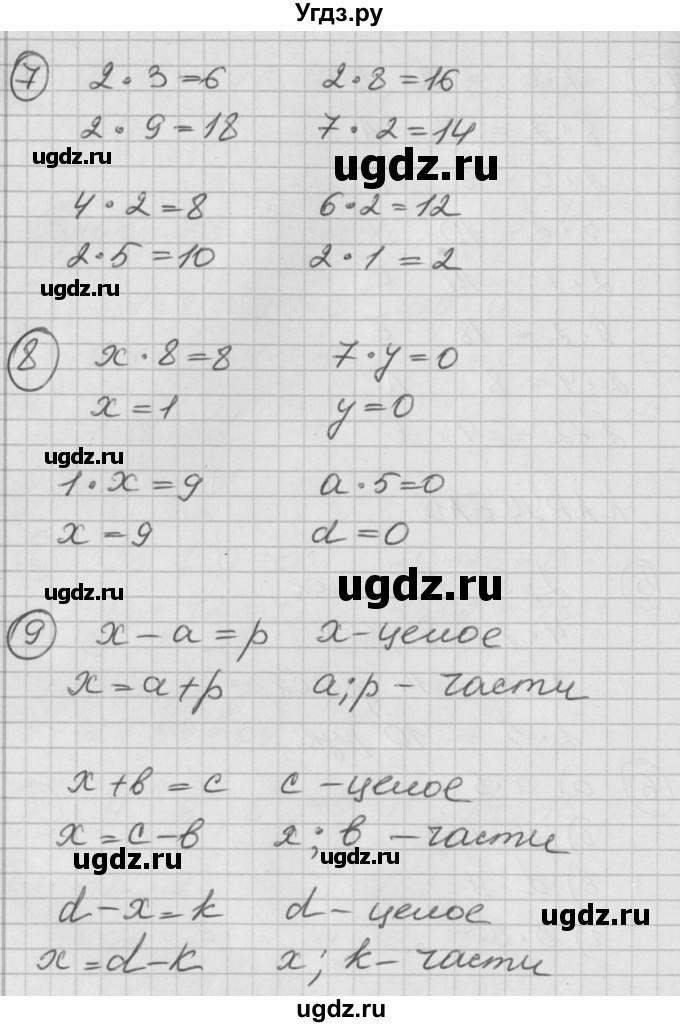 Угдз.ру
7 2 · 3 = 6 2 · 8 = 16
2 · 9 = 18 7 · 2 = 14
ugdz.ru ugdz.ru
4 · 2 = 8 6 · 2 = 12
2 · 5 = 10 2 · 1 = 2
ugdz.ru
8 x · 8 = 8 7 · y = 0
x = 1 y = 0
ugdz.ru
1 · x = 9 a · 5 = 0
x = 9 d = 0
ugdz.ru ugdz.ru
9 x – a = p x – целое
x = a + p a; p – части
x + в = c c – целое
x = c – в x; в – части
ugdz.ru ugdz.ru
d – x = k d – целое
ugdz.ru
x = d – k x; k – части
ugdz.ru